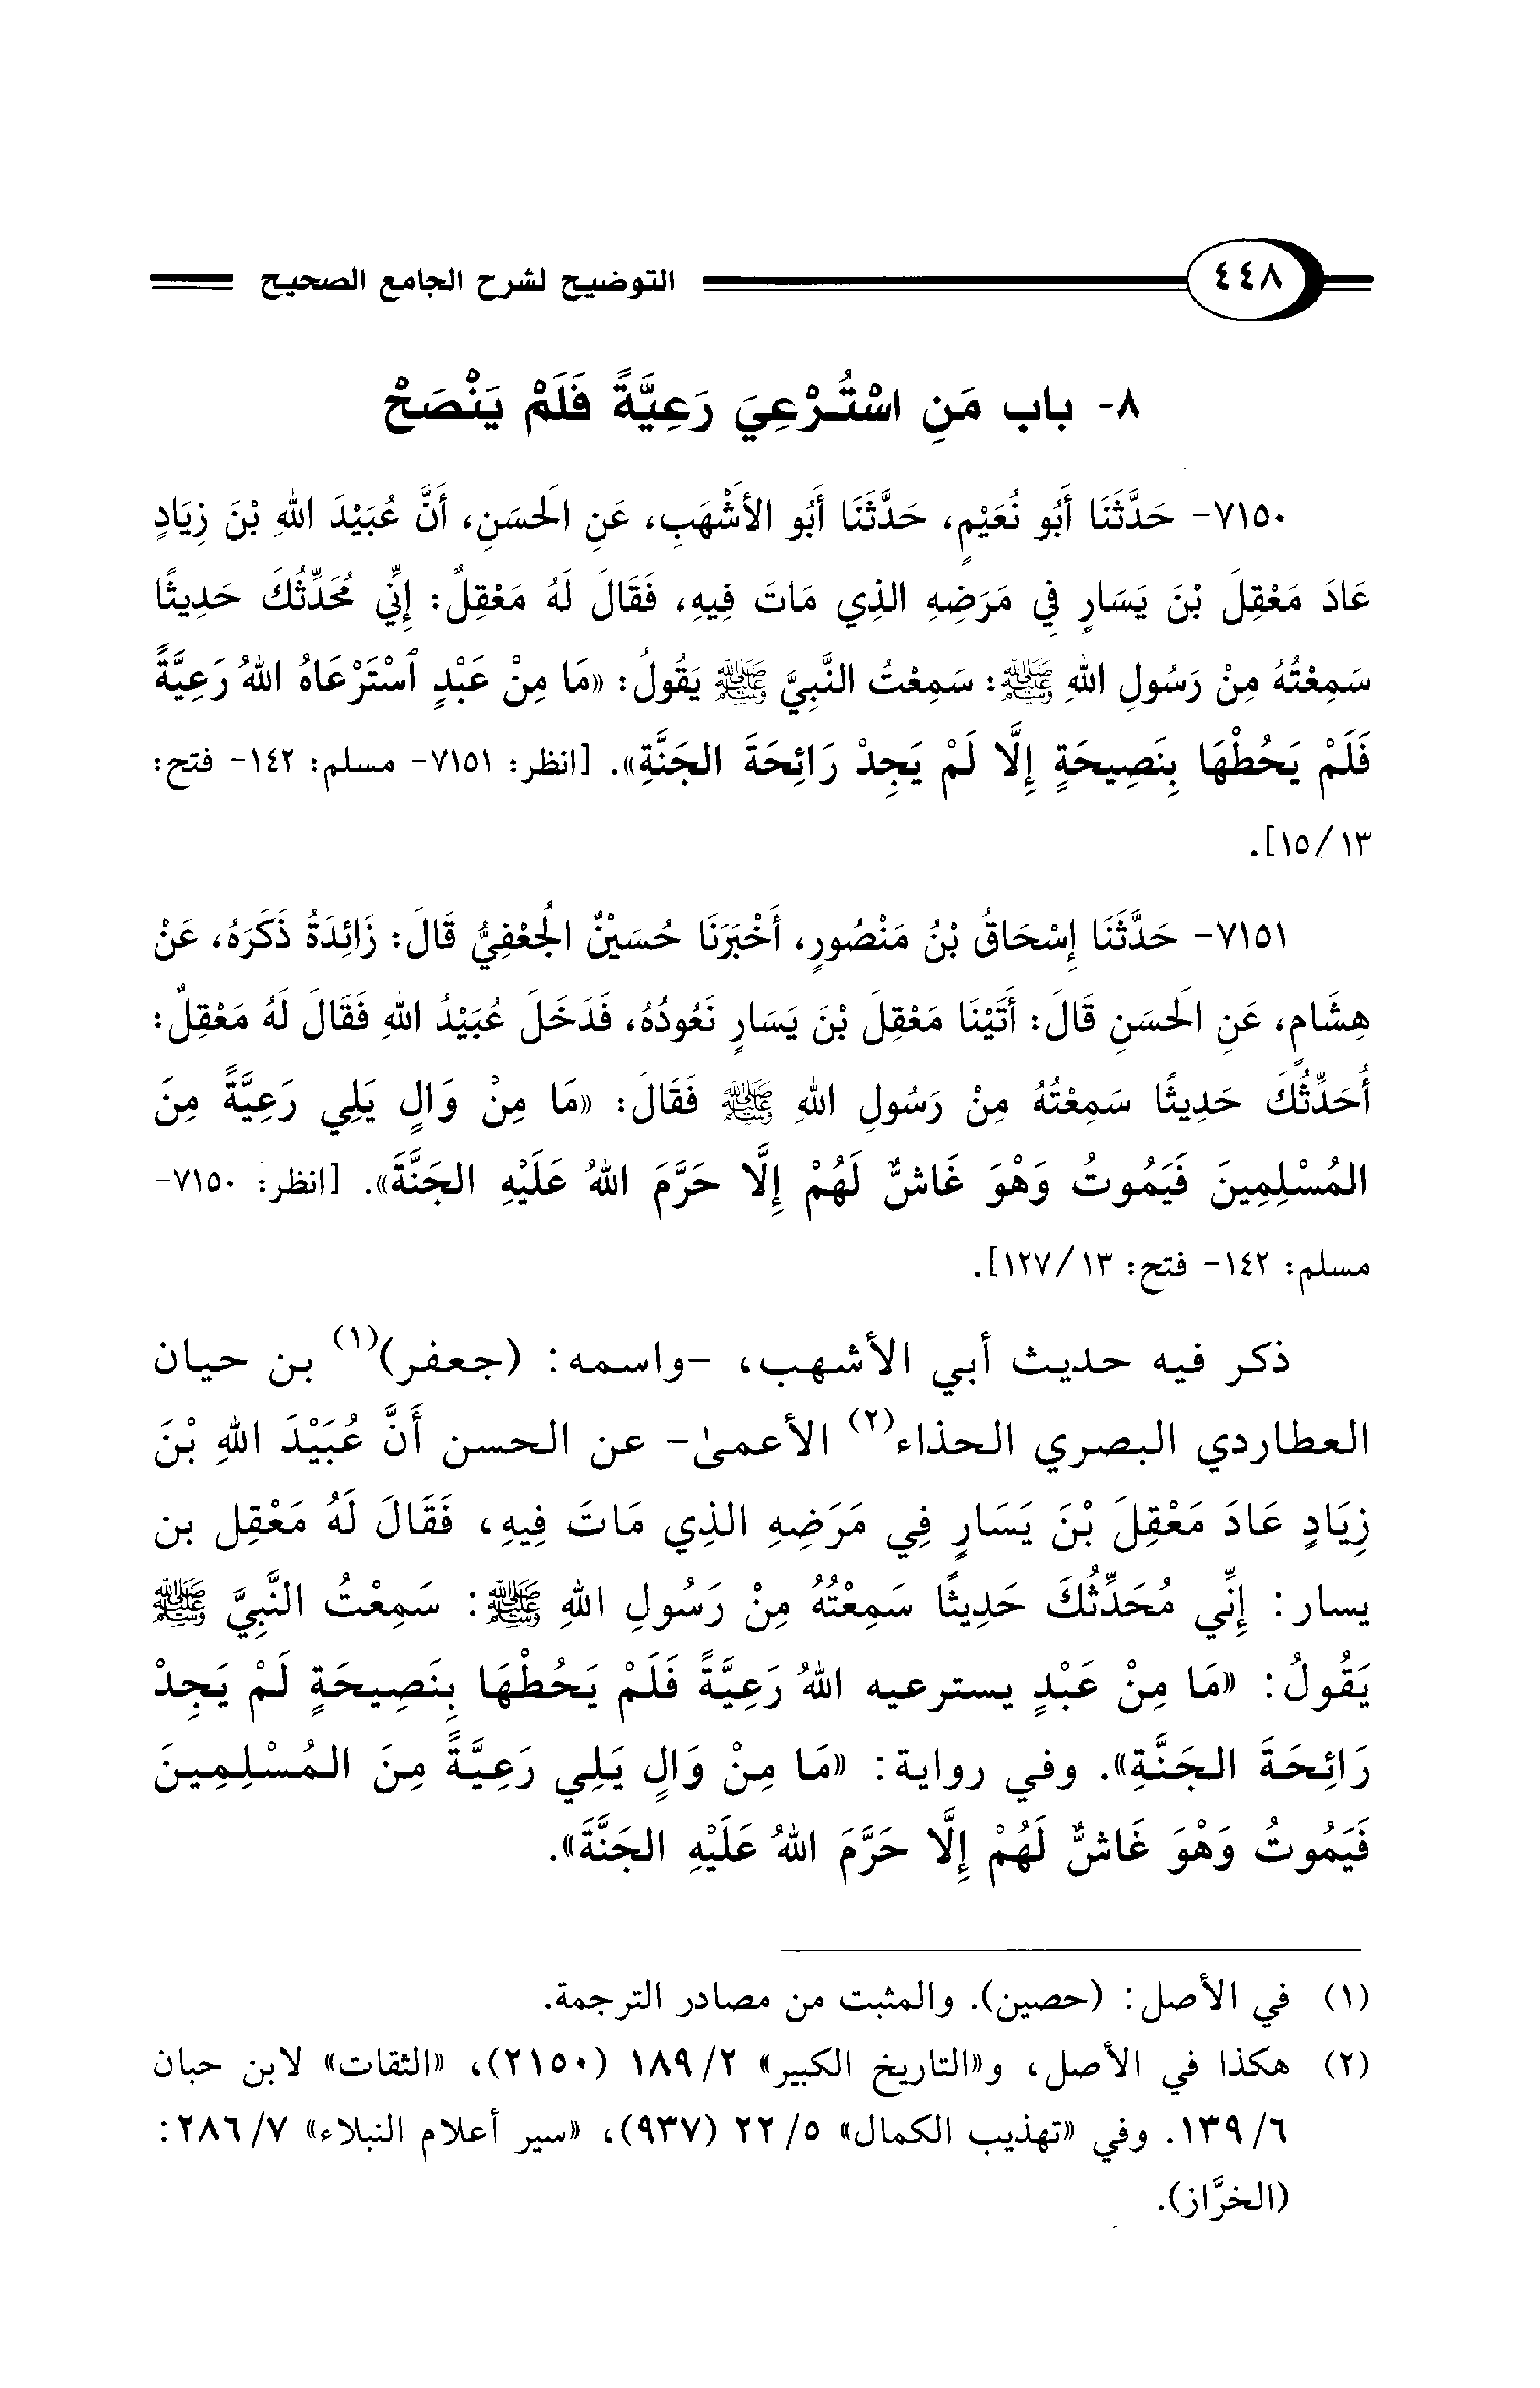 ٤٤٨ التوضيح لشرح الجامع الصحيح
٨- باب مَنِ اسْتُرْعِيَ رَعِيَّةً فَلَمْ يَنْصَحْ
٧١٥٠- حَدَّثَنَا أَبُو نُعَيْمٍ، حَدَّثَنَا أَبُو الأَشْهَبِ، عَنِ الَحسَنِ، أَنَّ عُبَيْدَ اللهِ بْنَ زِيَادٍ
عَادَ مَعْقِلَ بْنَ يَسَارٍ فِي مَرَضِهِ الذِي مَاتَ فِيهِ، فَقَالَ لَهُ مَعْقِلٌ: إِنِّي مُحَدِّثُكَ حَدِيثًا
سَمِعْتُهُ مِنْ رَسُولِ اللهِ ﷺ: سَمِعْتُ النَّبِيَّ ﷺ يَقُولُ: «مَا مِنْ عَبْدٍ ٱسْتَرْعَاهُ اللهُ رَعِيَّةً
فَلَمْ يَحُطْهَا بِنَصِيحَةٍ إِلَّا لَمْ يَجِدْ رَائِحَةَ الجَنَّةِ». [انظر: ٧١٥١- مسلم: ١٤٢- فتح:
١٣/ ١٥].
٧١٥١- حَدَّثَنَا إِسْحَاقُ بْنُ مَنْصُورٍ، أَخْبَرَنَا حُسَيْنٌ الُجعْفِيُّ قَالَ: زَائِدَةُ ذَكَرَهُ، عَنْ
هِشَامٍ، عَنِ الَحسَنِ قَالَ: أَتَيْنَا مَعْقِلَ بْنَ يَسَارٍ نَعُودُهُ، فَدَخَلَ عُبَيْدُ اللهِ فَقَالَ لَهُ مَعْقِلٌ:
أُحَدِّثُكَ حَدِيثًا سَمِعْتُهُ مِنْ رَسُولِ اللهِ ﷺ فَقَالَ: «مَا مِنْ وَالٍ يَلِي رَعِيَّةً مِنَ
المُسْلِمِينَ فَيَمُوتُ وَهْوَ غَاشٌّ لَهُمْ إِلَّا حَرَّمَ اللهُ عَلَيْهِ الجَنَّةَ». [انظر: ٧١٥٠-
مسلم: ١٤٢- فتح: ١٣/ ١٢٧].
ذكر فيه حديث أبي الأشهب، -واسمه: (جعفر)(١) بن حيان
العطاردي البصري الحذاء(٢) الأعمىٰ- عن الحسن أَنَّ عُبَيْدَ اللهِ بْنَ
زِيَادٍ عَادَ مَعْقِلَ بْنَ يَسَارٍ فِي مَرَضِهِ الذِي مَاتَ فِيهِ، فَقَالَ لَهُ مَعْقِل بن
يسار: إِنِّي مُحَدِّثُكَ حَدِيثًا سَمِعْتُهُ مِنْ رَسُولِ اللهِ ﷺ: سَمِعْتُ النَّبِيَّ ﷺ
يَقُولُ: «مَا مِنْ عَبْدٍ يسترعيه اللهُ رَعِيَّةً فَلَمْ يَحُطْهَا بِنَصِيحَةٍ لَمْ يَجِدْ
رَائِحَةَ الجَنَّةِ». وفي رواية: «مَا مِنْ وَالٍ يَلِي رَعِيَّةً مِنَ المُسْلِمِينَ
فَيَمُوتُ وَهْوَ غَاشٌّ لَهُمْ إِلَّا حَرَّمَ اللهُ عَلَيْهِ الجَنَّةَ».
(١) في الأصل: (حصين). والمثبت من مصادر الترجمة.
(٢) هكذا في الأصل، و«التاريخ الكبير» ٢/ ١٨٩ (٢١٥٠)، «الثقات» لابن حبان
٦/ ١٣٩. وفي «تهذيب الكمال» ٥/ ٢٢ (٩٣٧)، «سير أعلام النبلاء» ٧/ ٢٨٦:
(الخرَّاز).